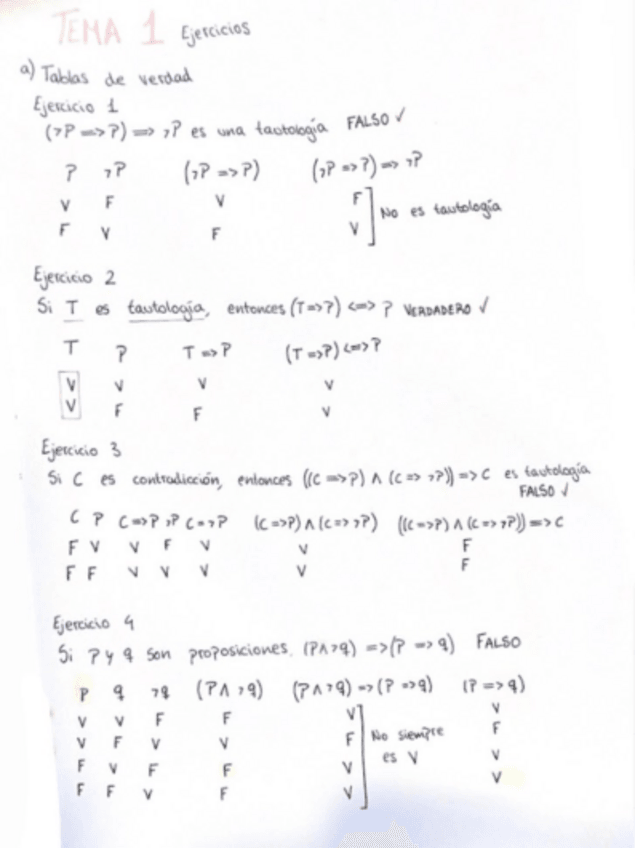 TEMA 1 Ejercicios
a) Tablas de verdad
Ejercicio 1
(¬P => P) => ¬P es una tautología FALSO ✓
P ¬P (¬P => P) (¬P => P) => ¬P
V F V F
F V F V
No es tautología
Ejercicio 2
Si T es tautología, entonces (T => P) <=> P VERDADERO ✓
T P T => P (T => P) <=> P
V V V V
V F F V
Ejercicio 3
Si C es contradicción, entonces ((C => P) ∧ (C => ¬P)) => C es tautología
FALSO ✓
C P C => P ¬P C => ¬P (C => P) ∧ (C => ¬P) ((C => P) ∧ (C => ¬P)) => C
F V V F V V F
F F V V V V F
Ejercicio 4
Si P y q son proposiciones, (P ∧ ¬q) => (P => q) FALSO
P q ¬q (P ∧ ¬q) (P ∧ ¬q) => (P => q) (P => q)
V V F F V V
V F V V F F
F V F F V V
F F V F V V
No siempre
es V